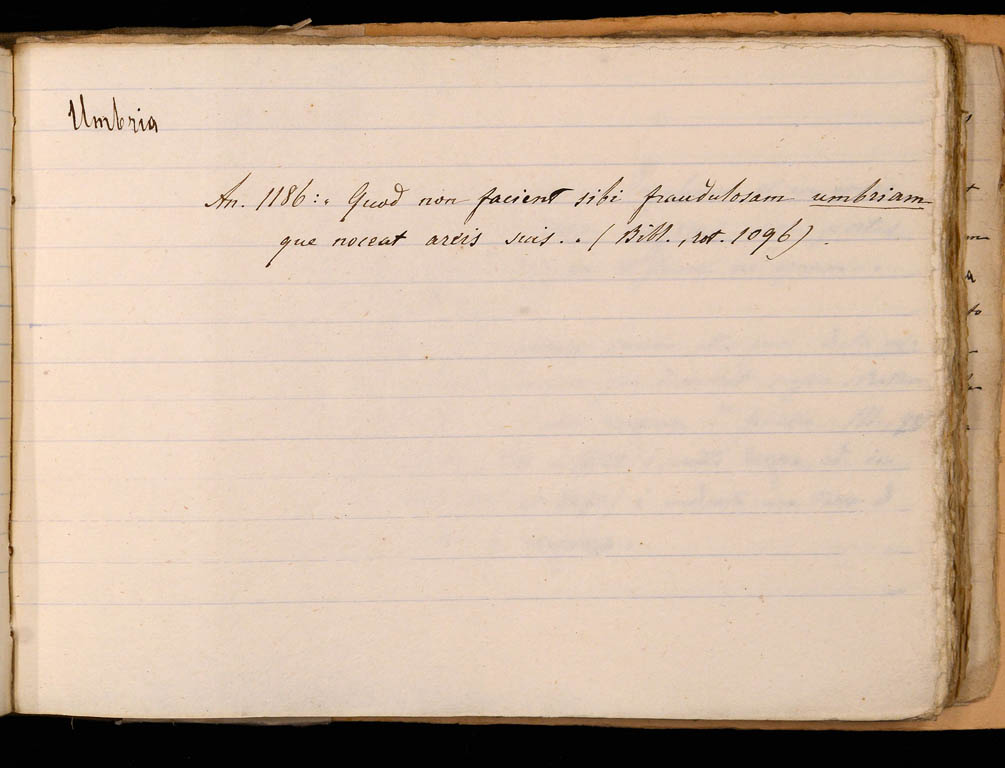 Umbria
An. 1186: " Quod non facient sibi fraudulosam umbriam
que noceat arcis suis. " (Bibl., rot. 1096)